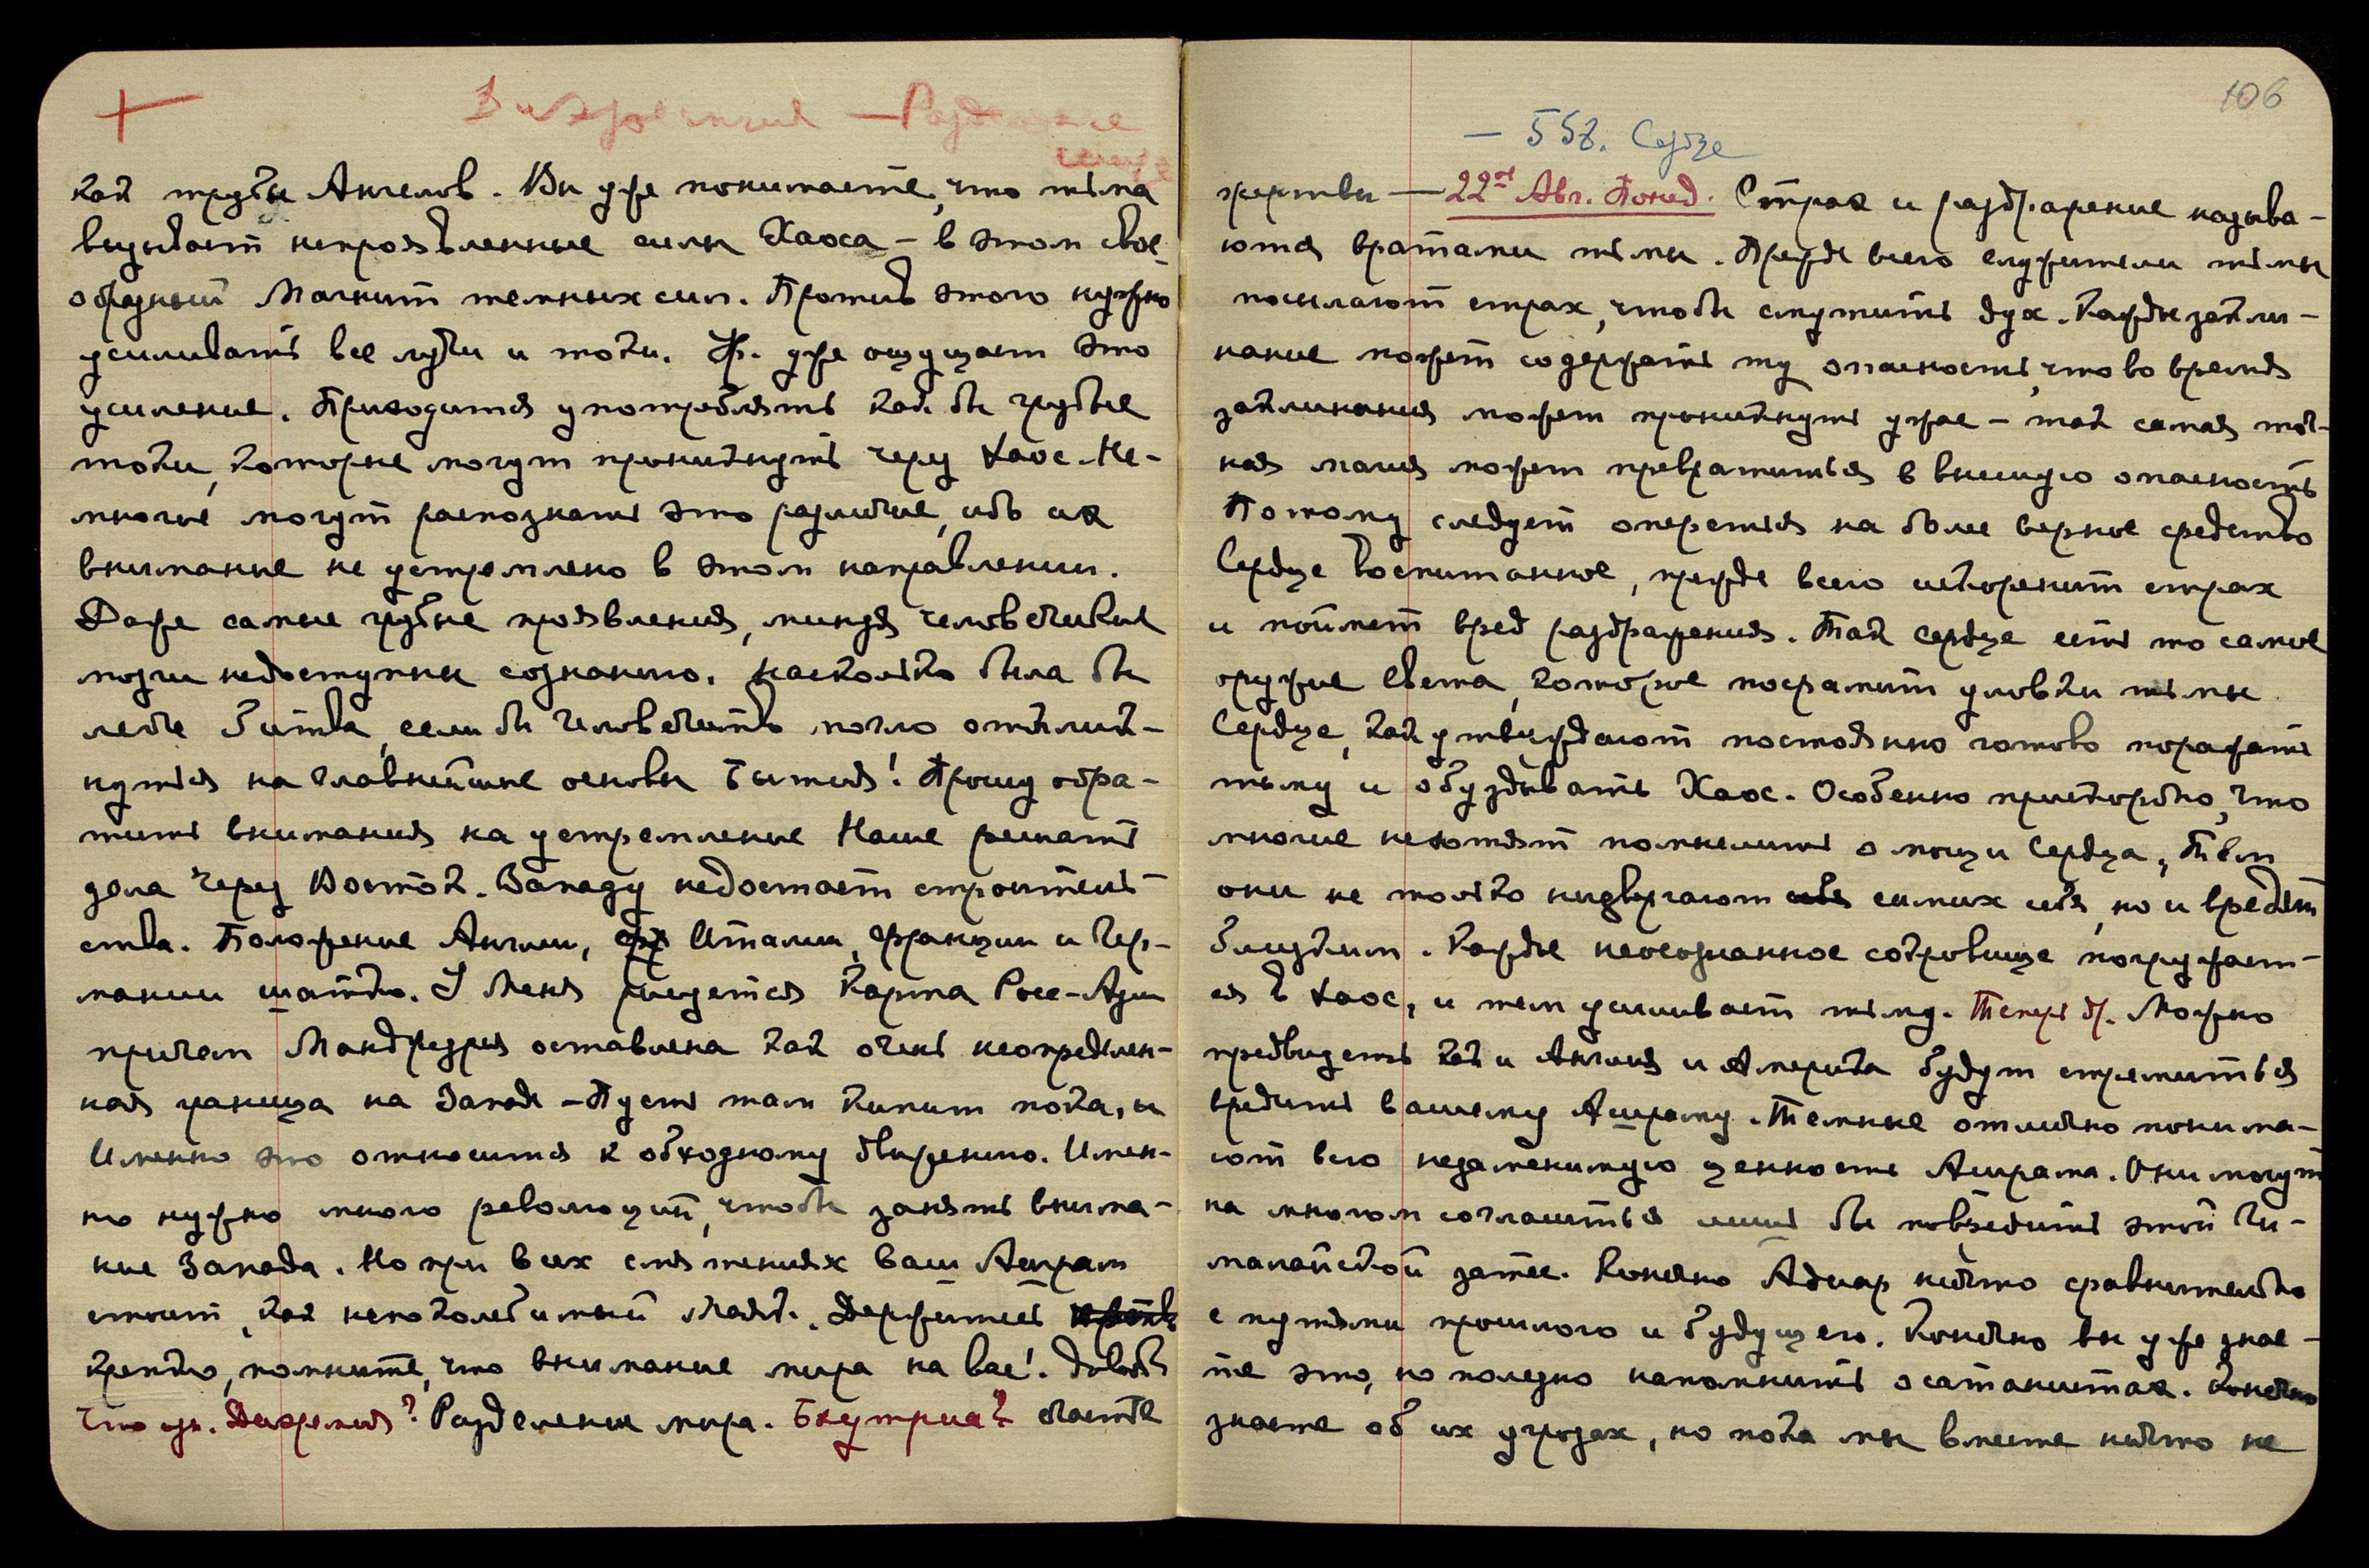 как трубы Ангелов. Вы уже понимаете, что тьма
вызывает непроявленные силы Хаоса – в этом свое-
образный Магнит темных сил. Против этого нужно
усиливать все лучи и токи. Ф. уже ощущает это
усиление. Приходится употреблять как бы грубые
токи, которые могут проникнуть через Хаос. Не-
многие могут распознать это различие, ибо их
внимание не устремлено в этом направлении.
Даже самые грубые проявления, минуя человеческие
мозги недоступны сознанию. Насколько была бы
легче Битва, если бы человечество могло откликнуться
на главнейшие основы Бытия! Прошу обра-
тить внимания на устремление Наше решать
дела через Восток. Западу недостает строитель-
ства. Положение Англии, Италии, Франции и Гер-
мании шатко. У Меня рисуется карта Росс-Азии
причем Манджурия оставлена как очень неопределен-
ная граница на Западе – Пусть там кипит пока, и
Именно это относится к обходному движению. Имен-
но нужно много революций, чтобы занять внима-
ние Запада. Но при всех смятениях ваш Ашрам
стоит, как непоколебимый Маяк. Держитесь
крепко, помните, что внимание мира на вас!. Довольно
Что зн. Дихремия? Разделение мира. Бхутриа? части
106
– 558. Сердце
жертвы — 22ое Авг. Понед. Страх и раздражение называ-
ются вратами тьмы. Прежде всего служители тьмы
посылают страх, чтобы смутить дух. Каждое закли-
нание может содержать ту опасность, что во время
заклинания может проникнуть ужас – так самая точ-
ная магия может превратиться в высшую опасность
Потому следует опереться на более верное средство
Сердце воспитанное, прежде всего искоренит страх
и поймет вред раздражения. Так сердце есть то самое
оружие Света, которое посрамит уловки тьмы
Сердце, как утверждают постоянно готово поражать
тьму и обуздывать Хаос. Особенно прискорбно, что
многие не хотят помыслить о мощи Сердца, Тем
они не только низвергают самих себя, но и вредят
близким. Каждое неосознанное сокровище погружает-
ся в Хаос, и тем усиливает тьму. Теперь др. Можно
предвидеть как и Англия и Америка будут стремиться
вредить вашему Ашраму. Темные отлично понима-
ют всю незаменимую ценность Ашрама. Они могут
на многом согласиться лишь бы повредить этой Ги-
малайской затее. Конечно Адиар ничто сравнительно
с путями прошлого и будущего. Конечно вы уже знае-
те это, но полезно напомнить о сатанистах. Конечно
знаете об их угрозах, но пока мы вместе ничто не